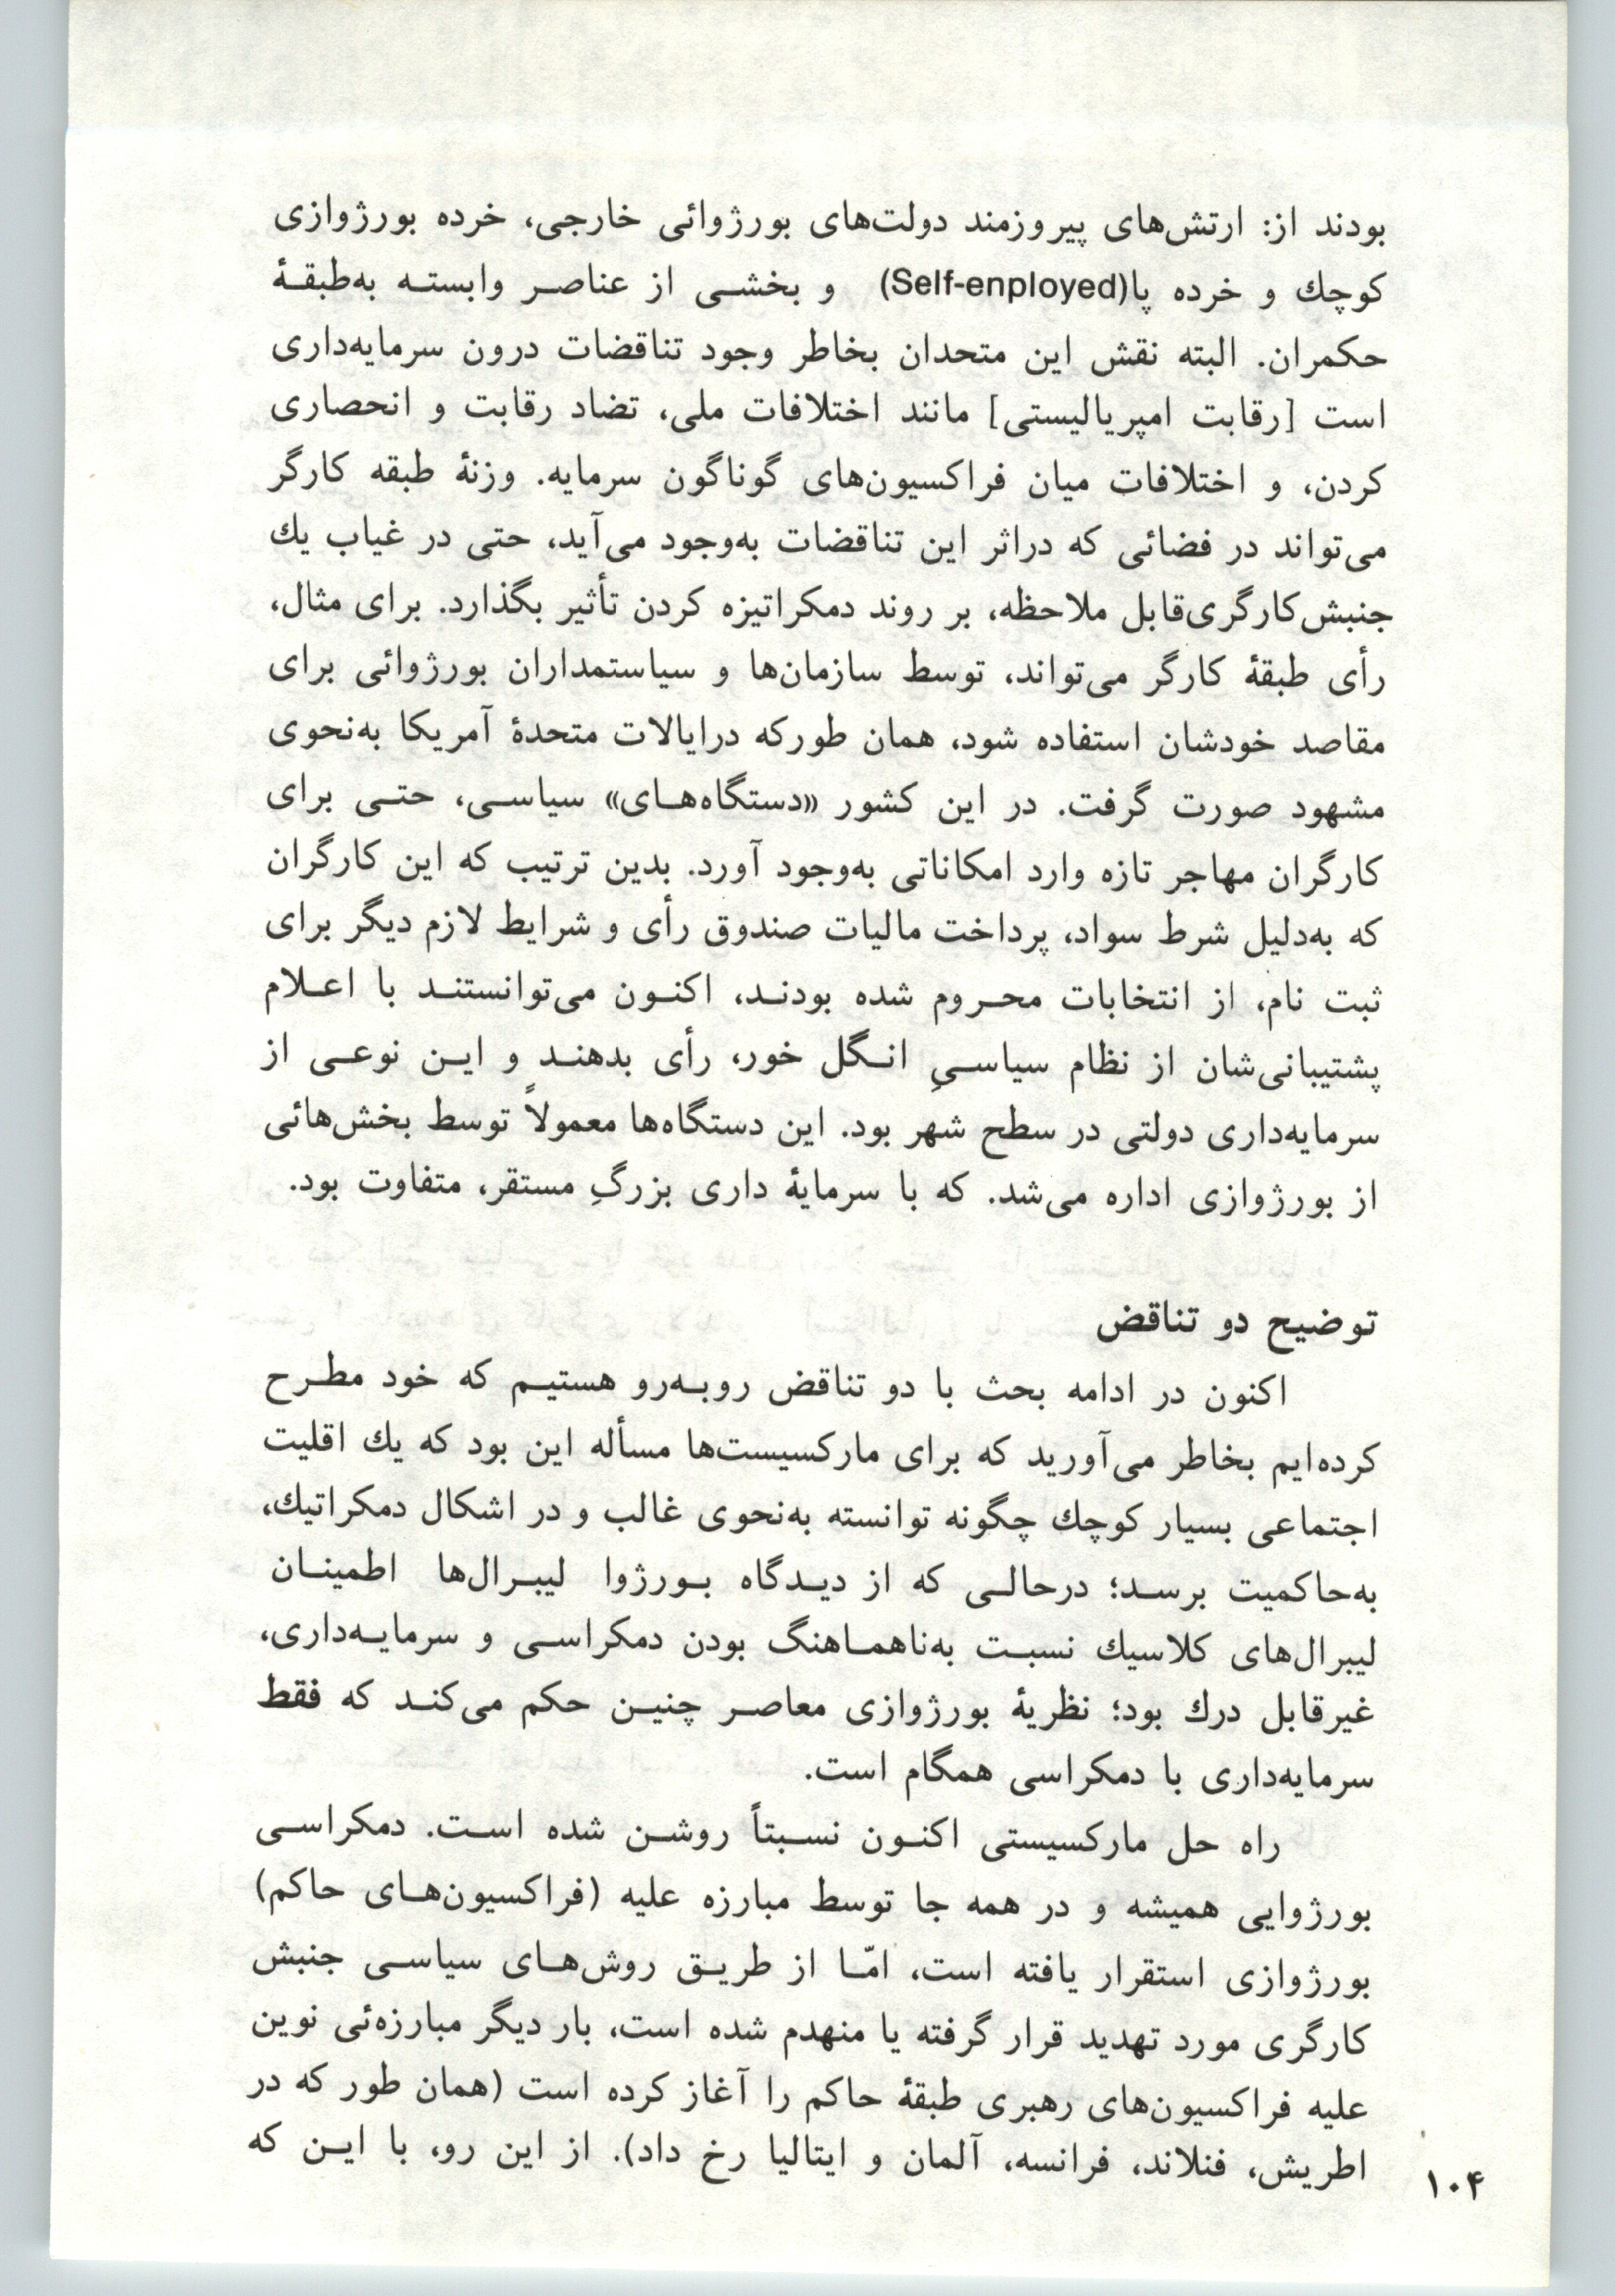 بودند از: ارتش‌های پیروزمند دولت‌های بورژوائی خارجی، خرده بورژوازی
کوچك و خرده پا(Self-enployed) و بخشی از عناصر وابسته به‌طبقهٔ
حکمران. البته نقش این متحدان بخاطر وجود تناقضات درون سرمایه‌داری
است [رقابت امپریالیستی] مانند اختلافات ملی، تضاد رقابت و انحصاری
کردن، و اختلافات میان فراکسیون‌های گوناگون سرمایه. وزنهٔ طبقه کارگر
می‌تواند در فضائی که دراثر این تناقضات به‌وجود می‌آید، حتی در غیاب یك
جنبش‌کارگری‌قابل ملاحظه، بر روند دمکراتیزه کردن تأثیر بگذارد. برای مثال،
رأی طبقهٔ کارگر می‌تواند، توسط سازمان‌ها و سیاستمداران بورژوائی برای
مقاصد خودشان استفاده شود، همان طورکه درایالات متحدهٔ آمریکا به‌نحوی
مشهود صورت گرفت. در این کشور «دستگاه‌های» سیاسی، حتی برای
کارگران مهاجر تازه وارد امکاناتی به‌وجود آورد. بدین ترتیب که این کارگران
که به‌دلیل شرط سواد، پرداخت مالیات صندوق رأی و شرایط لازم دیگر برای
ثبت نام، از انتخابات محروم شده بودند، اکنون می‌توانستند با اعلام
پشتیبانی‌شان از نظام سیاسیِ انگل خور، رأی بدهند و این نوعی از
سرمایه‌داری دولتی در سطح شهر بود. این دستگاه‌ها معمولاً توسط بخش‌هائی
از بورژوازی اداره می‌شد. که با سرمایهٔ داری بزرگِ مستقر، متفاوت بود.
توضیح دو تناقض
اکنون در ادامه بحث با دو تناقض روبه‌رو هستیم که خود مطرح
کرده‌ایم بخاطر می‌آورید که برای مارکسیست‌ها مسأله این بود که یك اقلیت
اجتماعی بسیار کوچك چگونه توانسته به‌نحوی غالب و در اشکال دمکراتیك،
به‌حاکمیت برسد؛ درحالی که از دیدگاه بورژوا لیبرال‌ها اطمینان
لیبرال‌های کلاسیك نسبت به‌ناهماهنگ بودن دمکراسی و سرمایه‌داری،
غیرقابل درك بود؛ نظریهٔ بورژوازی معاصر چنین حکم می‌کند که فقط
سرمایه‌داری با دمکراسی همگام است.
راه حل مارکسیستی اکنون نسبتاً روشن شده است. دمکراسی
بورژوایی همیشه و در همه جا توسط مبارزه علیه (فراکسیون‌های حاکم)
بورژوازی استقرار یافته است، امّا از طریق روش‌های سیاسی جنبش
کارگری مورد تهدید قرار گرفته یا منهدم شده است، بار دیگر مبارزه‌ئی نوین
علیه فراکسیون‌های رهبری طبقهٔ حاکم را آغاز کرده است (همان طور که در
اطریش، فنلاند، فرانسه، آلمان و ایتالیا رخ داد). از این رو، با این که
۱۰۴